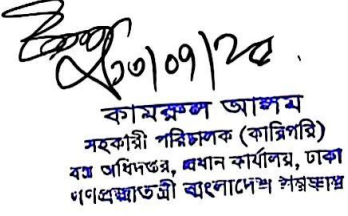 ২০/০৭/২৫
কামরুল আলম
সহকারী পরিচালক (কারিগরি)
বস্ত্র অধিদপ্তর, প্রধান কার্যালয়, ঢাকা
গণপ্রজাতন্ত্রী বাংলাদেশ সরকার